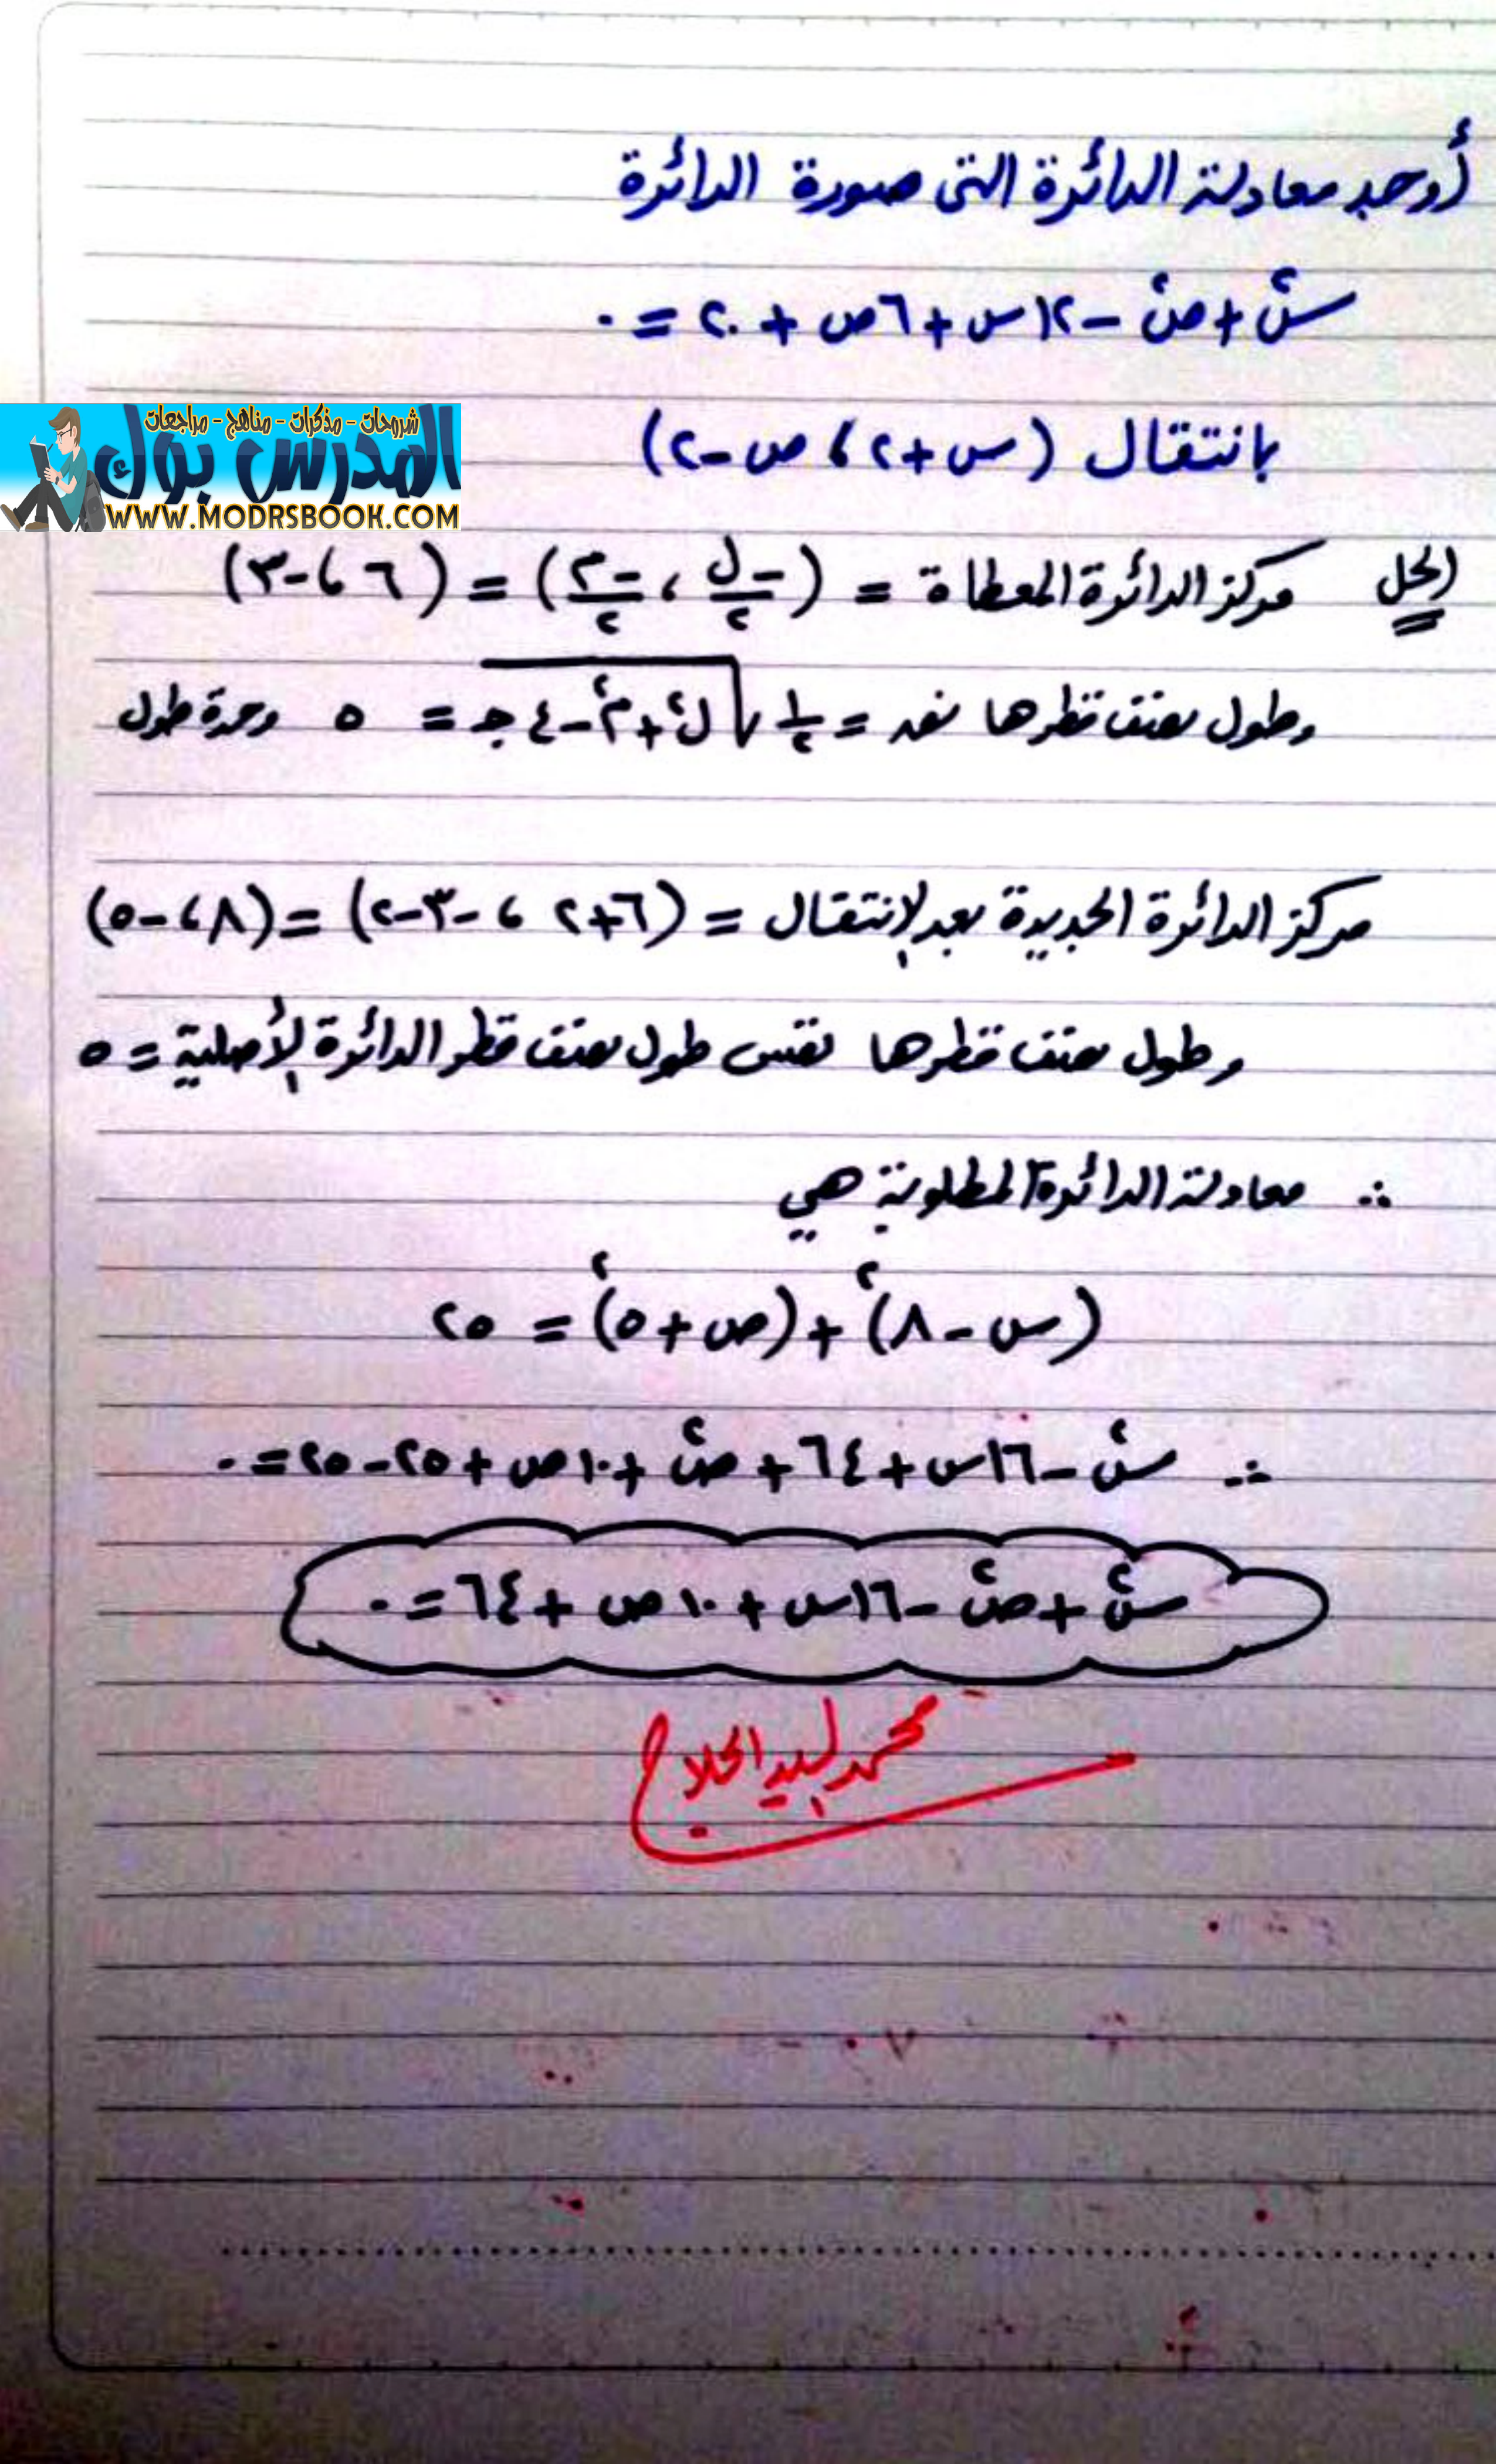 أوجد معادلة الدائرة التى صورة الدائرة
س² + ص² - ١٢س + ٦ص + ٢٠ = ٠
بانتقال (س+٢ ، ص-٢)
شروحات - مذكرات - مناهج - مراجعات
المدرس بوك
WWW.MODRSBOOK.COM
الحل مركز الدائرة المعطاة = (-ل/٢ ، -م/٢) = (٦ ، -٣)
وطول نصف قطرها نق = ١/٢ √(ل² + م² - ٤جـ) = ٥ وحدة طول
مركز الدائرة الجديدة بعد الإنتقال = (٦+٢ ، -٣-٢) = (٨ ، -٥)
وطول نصف قطرها نفس طول نصف قطر الدائرة الأصلية = ٥
∴ معادلة الدائرة المطلوبة هي
(س - ٨)² + (ص + ٥)² = ٢٥
∴ س² - ١٦س + ٦٤ + ص² + ١٠ص + ٢٥ - ٢٥ = ٠
س² + ص² - ١٦س + ١٠ص + ٦٤ = ٠
محمد السيد الحلاج